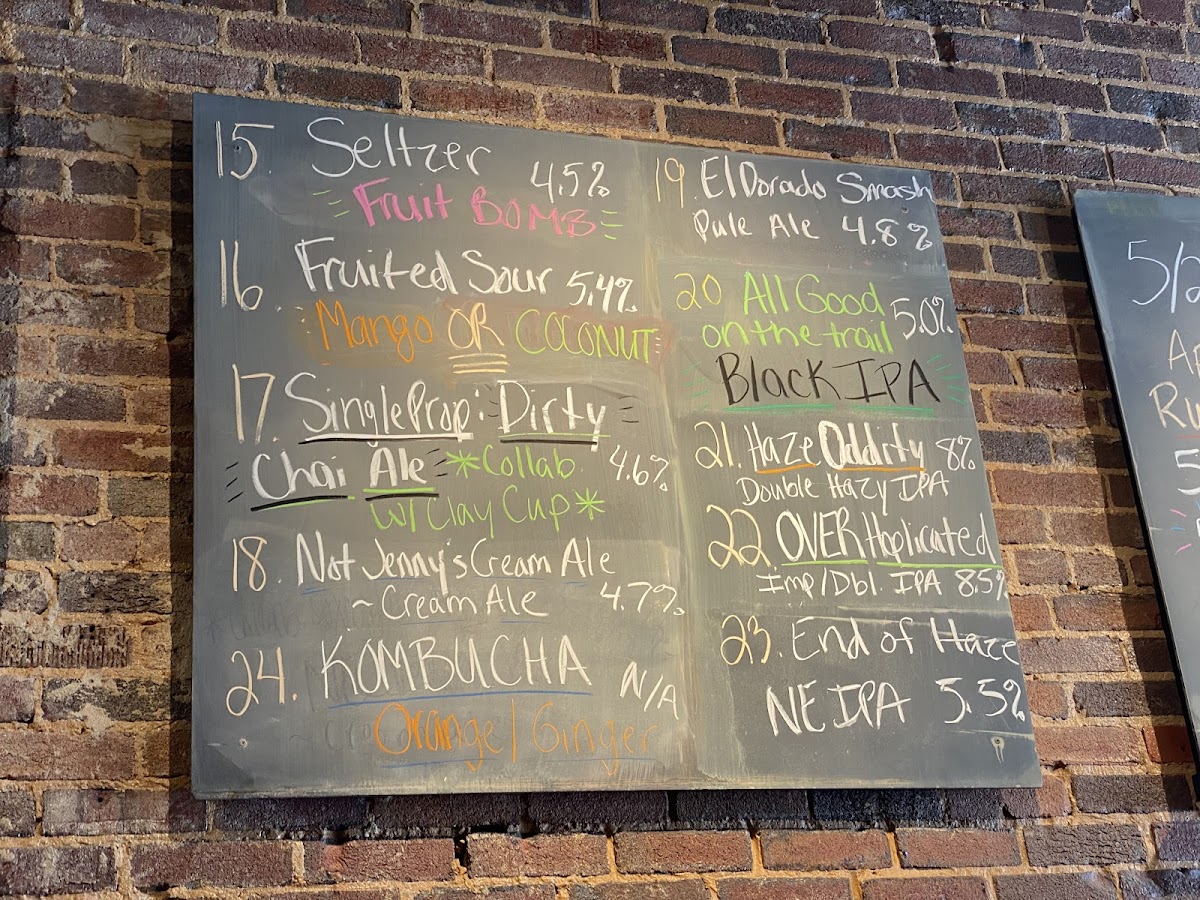 15. Seltzer 4.5%
Fruit BOMB
16. Fruited Sour 5.4%
Mango OR COCONUT
17. SingleProp: Dirty
Chai Ale *Collab 4.6%
w/ Clay Cup*
18. Not Jenny's Cream Ale
~ Cream Ale 4.7%
24. KOMBUCHA N/A
Orange/Ginger
19. El Dorado Smash
Pale Ale 4.8%
20 All Good
on the trail 5.0%
Black IPA
21. Haze Oddity 8%
Double Hazy IPA
22. OVER Hoplicated
Imp/Dbl. IPA 8.5%
23. End of Haze
NE IPA 5.5%
5/2
Ap
Ru
5